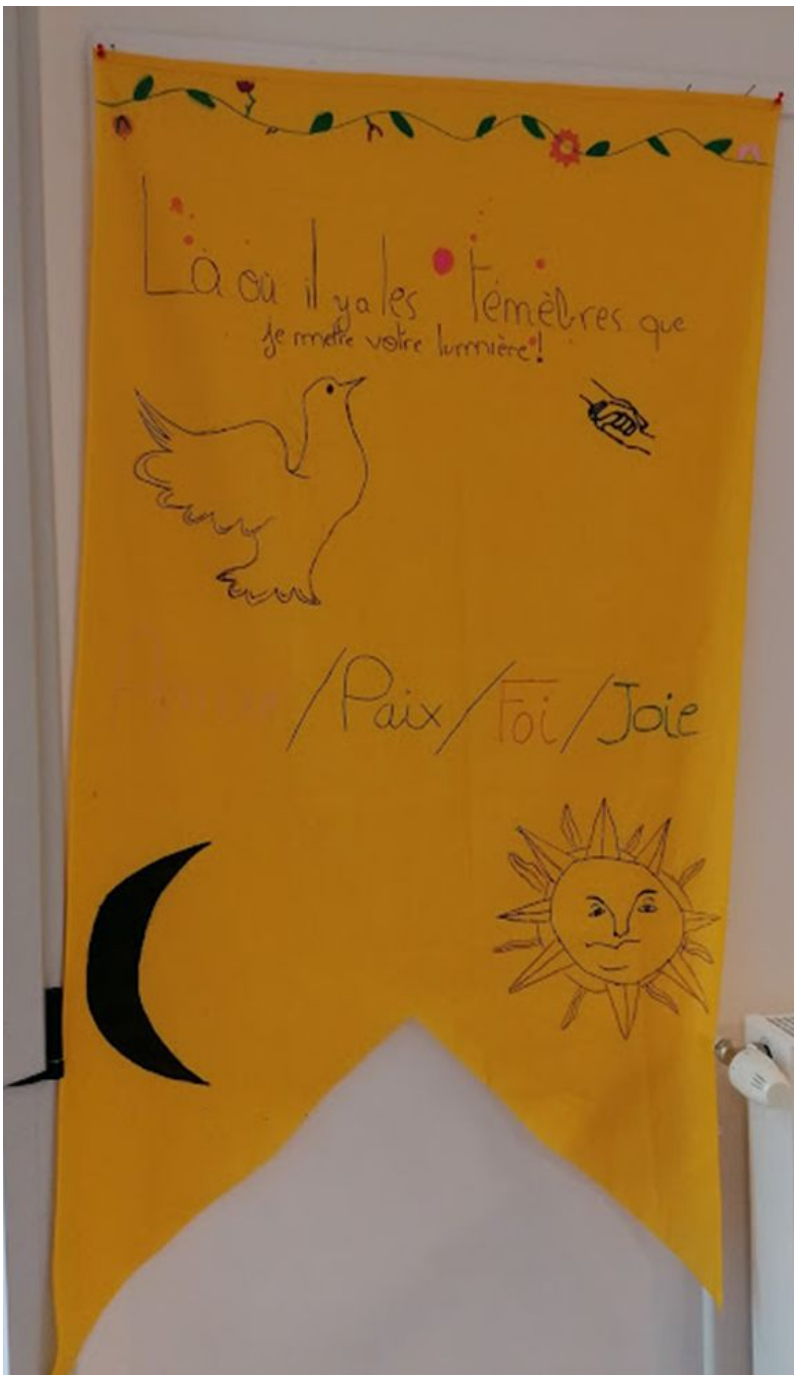 Là où il y a les témèbres que
je mette votre lummière!
/Paix/Foi/Joie